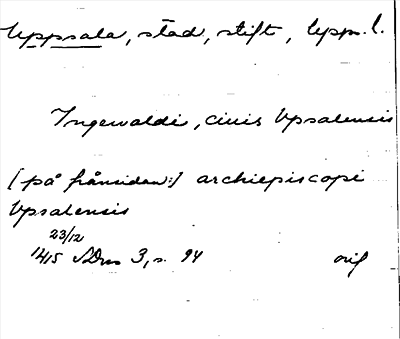 Uppsala, stad, stift, Upps. l.
Ingewaldi, civis Vpsalensis
[på frånsidan:] archiepiscopi
Vpsalensis
23/12
1415 SDns 3, s. 94 orig